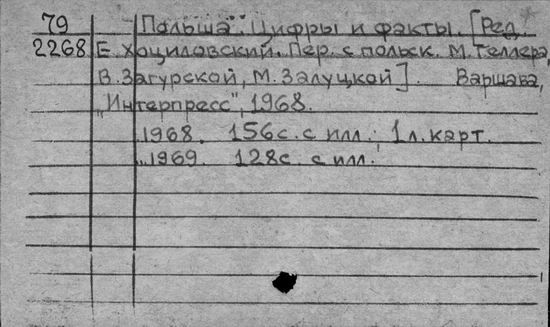 79 Польша. Цифры и факты. [Ред.
2268 Е. Хоциловский. Пер. с польск. М. Теллера,
В. Загурской, М. Залуцкой]. Варшава,
„Интерпресс", 1968.
1968. 156с. с илл.; 1 л. карт.
1969. 128с. с илл.